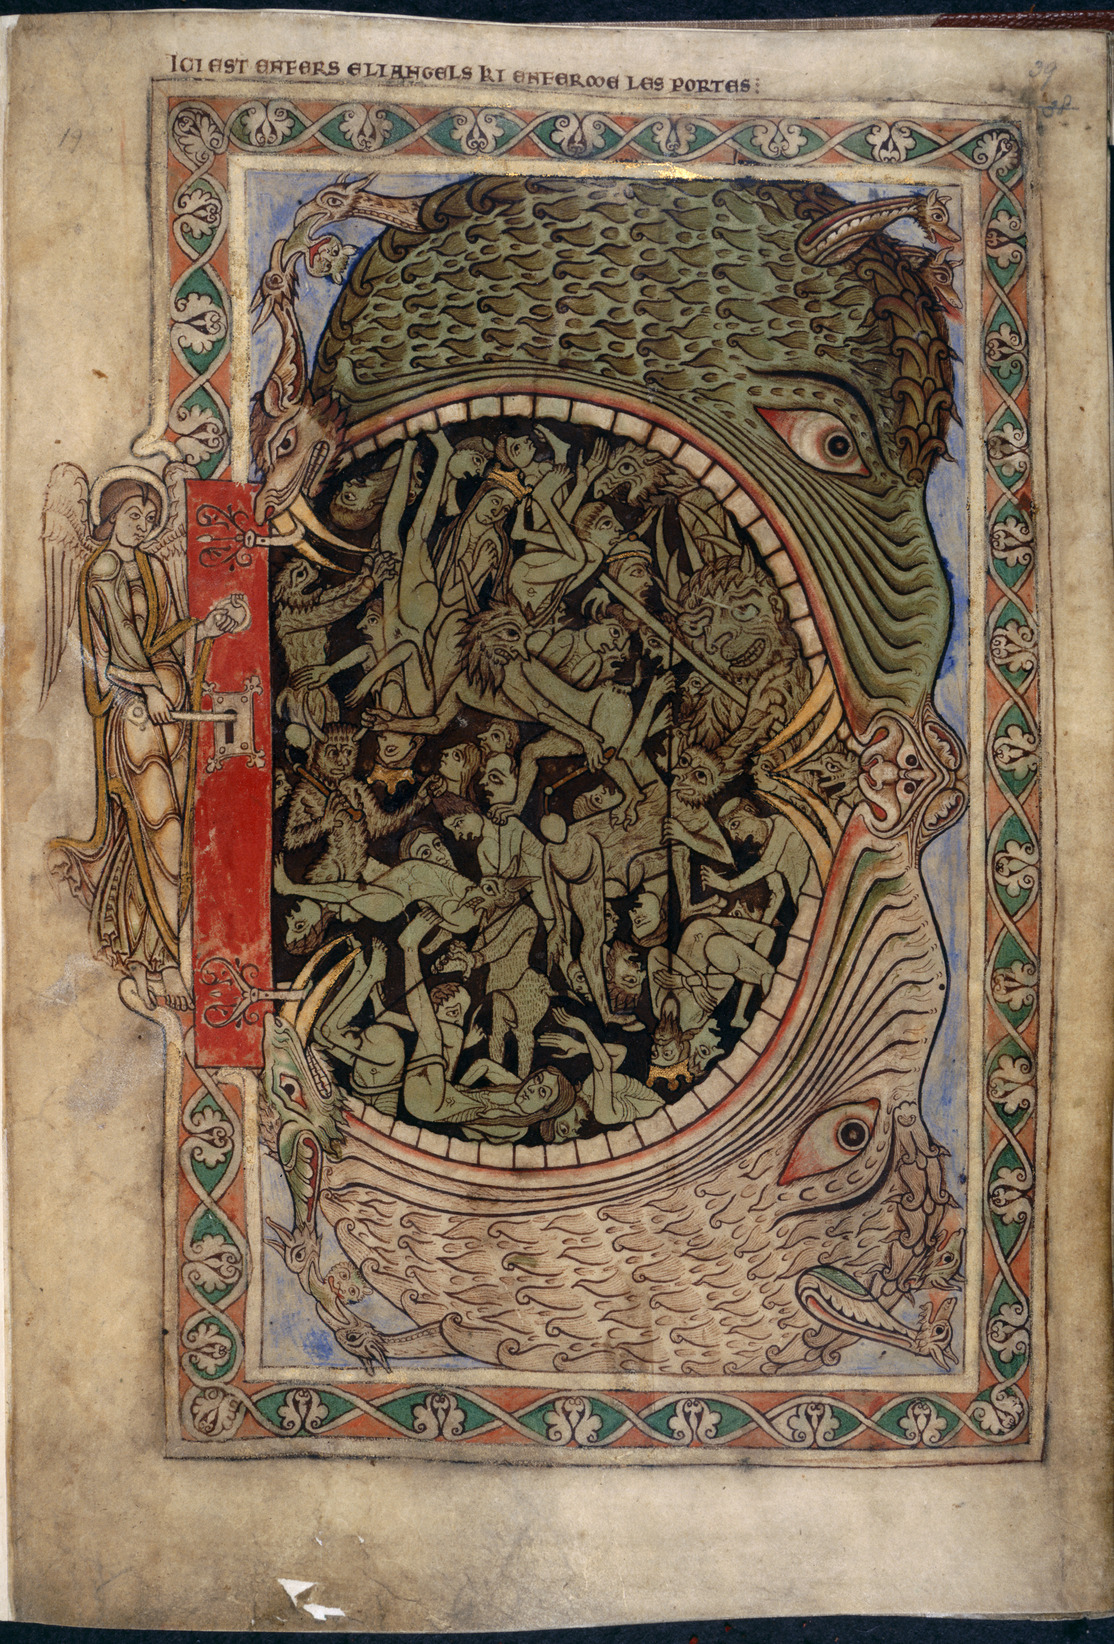 ICI EST ENFERS E LI ANGELS KI ENFERME LES PORTES:
39
38
19